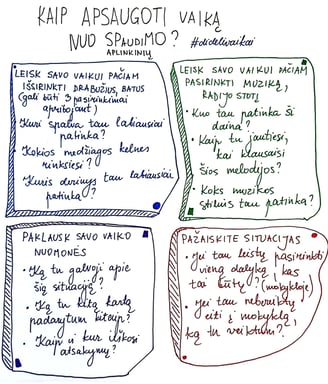 KAIP APSAUGOTI VAIKĄ
NUO SPAUDIMO? #didelivaikai
APLINKINIŲ
LEISK SAVO VAIKUI PAČIAM
IŠSIRINKTI DRABUŽIUS, BATUS
(gali būti 3 pasirinkimai
apribojant)
Kuri spalva tau labiausiai
patinka?
Kokios medžiagos kelnes
rinksiesi?
Kuris derinys tau labiausiai
patinka?
LEISK SAVO VAIKUI PAČIAM
PASIRINKTI MUZIKĄ,
RADIJO STOTĮ
• Kuo tau patinka ši
daina?
• Kaip tu jautiesi,
kai klausaisi
šios melodijos?
• Koks muzikos
stilius tau patinka?
PAKLAUSK SAVO VAIKO
NUOMONĖS
• Ką tu galvoji apie
šią situaciją?
• Ką tu kitą kartą
padarytum kitaip?
• Kaip ir kur ieškosi
atsakymų?
PAŽAISKITE SITUACIJAS
• Jei tau leistų pasirinkti
vieną dalyką, kas
tai būtų? (mokykloje)
• Jei tau nebereiktų
eiti į mokyklą,
ką tu veiktum?